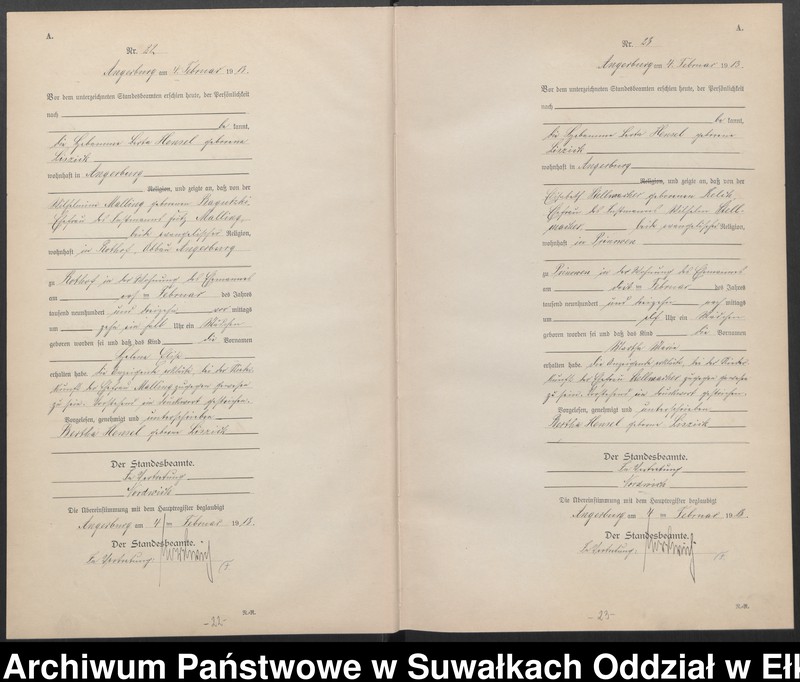 A.
Nr. 22.
Angerburg am 4. Februar 1913.
Vor dem unterzeichneten Standesbeamten erschien heute, der Persönlichkeit
nach
be kannt,
die Hebamme Berta Hensel geborene
wohnhaft in Angerburg
Religion, und zeigte an, daß von der
Wilhelmine Malling geborenen
Ehefrau des Fritz Malling,
beide evangelischer Religion,
wohnhaft in Abbau Angerburg
zu in der Wohnung des Ehemannes
am Februar des Jahres
tausend neunhundert und dreizehn vor mittags
um zehn ein halb Uhr ein Mädchen
geboren worden sei und daß das Kind die Vornamen
Helene
erhalten habe. Die Anzeigende erklärte, bei der Nieder-
kunft der Ehefrau Malling zugegen gewesen
zu sein. Vorstehend ein Druckwort gestrichen.
Vorgelesen, genehmigt und unterschrieben
Bertha Hensel geborene
Der Standesbeamte.
In Vertretung
Die Übereinstimmung mit dem Hauptregister beglaubigt
Angerburg am 4 ten Februar 1913.
Der Standesbeamte.
In Vertretung
R.-R.
-22-
A.
Nr. 23
Angerburg am 4. Februar 1913.
Vor dem unterzeichneten Standesbeamten erschien heute, der Persönlichkeit
nach
be kannt,
die Hebamme Berta Hensel geborene
wohnhaft in Angerburg
Religion, und zeigte an, daß von der
Elisabeth geborenen
Ehefrau des Wilhelm
beide evangelischer Religion,
wohnhaft in Prinowen
zu Prinowen in der Wohnung des Ehemannes
am Februar des Jahres
tausend neunhundert und dreizehn mittags
um elf Uhr ein Mädchen
geboren worden sei und daß das Kind die Vornamen
Martha Maria
erhalten habe. Die Anzeigende erklärte, bei der Nieder-
kunft der Ehefrau zugegen gewesen
zu sein. Vorstehend ein Druckwort gestrichen.
Vorgelesen, genehmigt und unterschrieben
Bertha Hensel geborene
Der Standesbeamte.
In Vertretung
Die Übereinstimmung mit dem Hauptregister beglaubigt
Angerburg am 4 ten Februar 1913.
Der Standesbeamte.
In Vertretung
R.-R.
-23-
Archiwum Państwowe w Suwałkach Oddział w Ełk